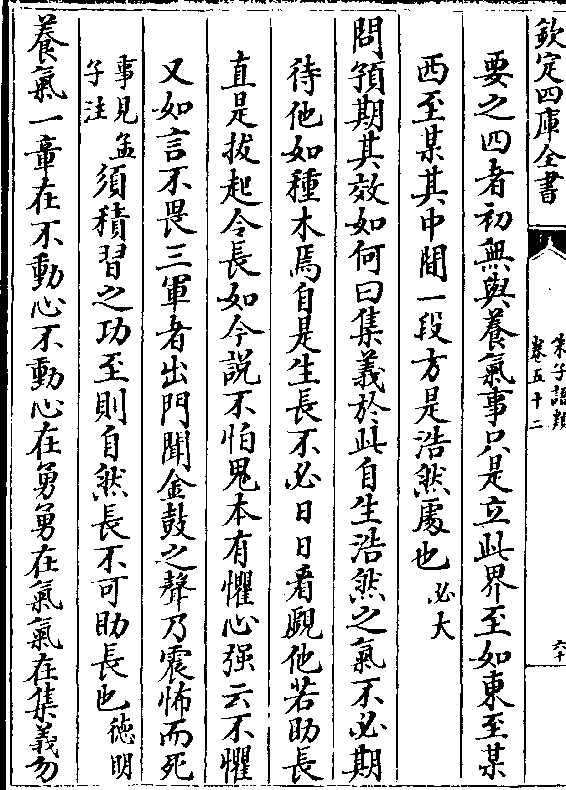 欽定四庫全書
朱子語類
卷五十二
六十
要之四者初無與養氣事只是立此界至如東至某
西至某其中間一段方是浩然處也必大
問預期其效如何曰集義於此自生浩然之氣不必期
待他如種木焉自是生長不必日日看覷他若助長
直是拔起令長如今說不怕鬼本有懼心强云不懼
又如言不畏三軍者出門聞金鼓之聲乃震怖而死
事見孟
子注
須積習之功至則自然長不可助長也徳明
養氣一章在不動心不動心在勇勇在氣氣在集義勿